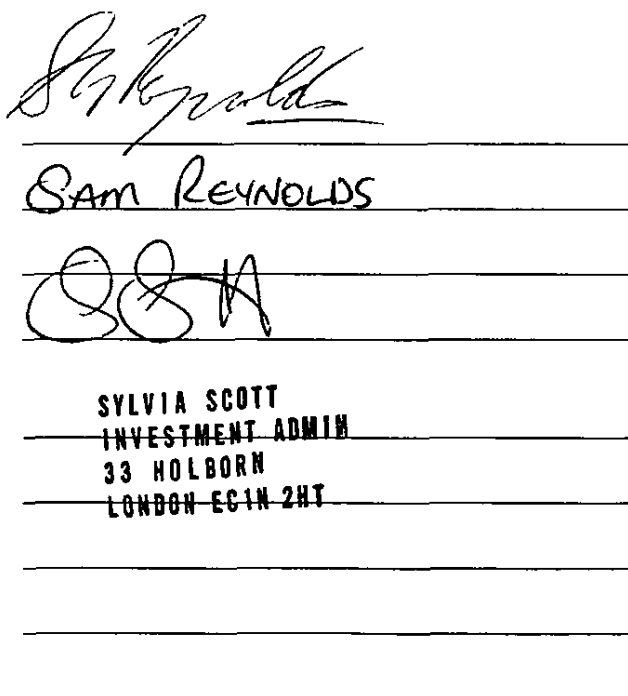 SAM REYNOLDS
SYLVIA SCOTT
INVESTMENT ADMIN
33 HOLBORN
LONDON EC1N 2HT